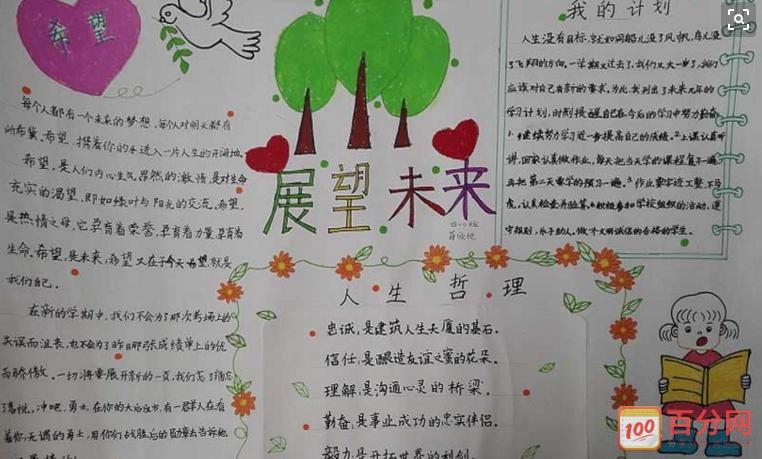 希望
每个人都有一个未来的梦想，每个人对明天都有
所希冀。希望，携着你的手进入一片人生的开阔地。
希望，是人们内心生气昂然的激情，是对生命
充实的渴望，即如绿叶与阳光的交流。希望，
是热情之母，它孕育着荣誉，孕育着力量，孕育着
生命。希望，是未来；希望又在于今天；希望，就是
我们自己。
在新的学期中，我们不会为了那次考场上的
失误而沮丧，也不会为了昨日那张成绩单上的优
而骄傲。一切将要展开新的一页，我们忘了痛忘
了喜悦，冲吧，勇士，在你的大后方，有一群人在看
着你，无谓的勇士，用你们战胜后的勋章去告诉他
展望未来
四·
我的计划
人生没有目标，就如同船儿没了风帆，鸟儿没
了飞翔的方向。一学期又过去了，我们又大一岁了，我们
应该对自己有新的要求。为此，我列出了未来几年的
学习计划，时刻提醒自己在今后的学习中努力勤奋。
1.继续努力学习进一步提高自己的成绩。2.上课认真听
讲，回家认真做作业，每天把当天学的课程复习一遍，
再把第二天要学的预习一遍。3.作业要字迹工整，不马
虎，认真检查并验算。4.积极参加学校组织的活动，遵
守规则，乐于助人，做个文明诚信的合格的学生。
人生哲理
忠诚，是建筑人生大厦的基石。
信任，是酿造友谊之蜜的花朵。
理解，是沟通心灵的桥梁。
勤奋，是事业成功的忠实伴侣。
毅力，是开拓世界的利剑。
100
百分网